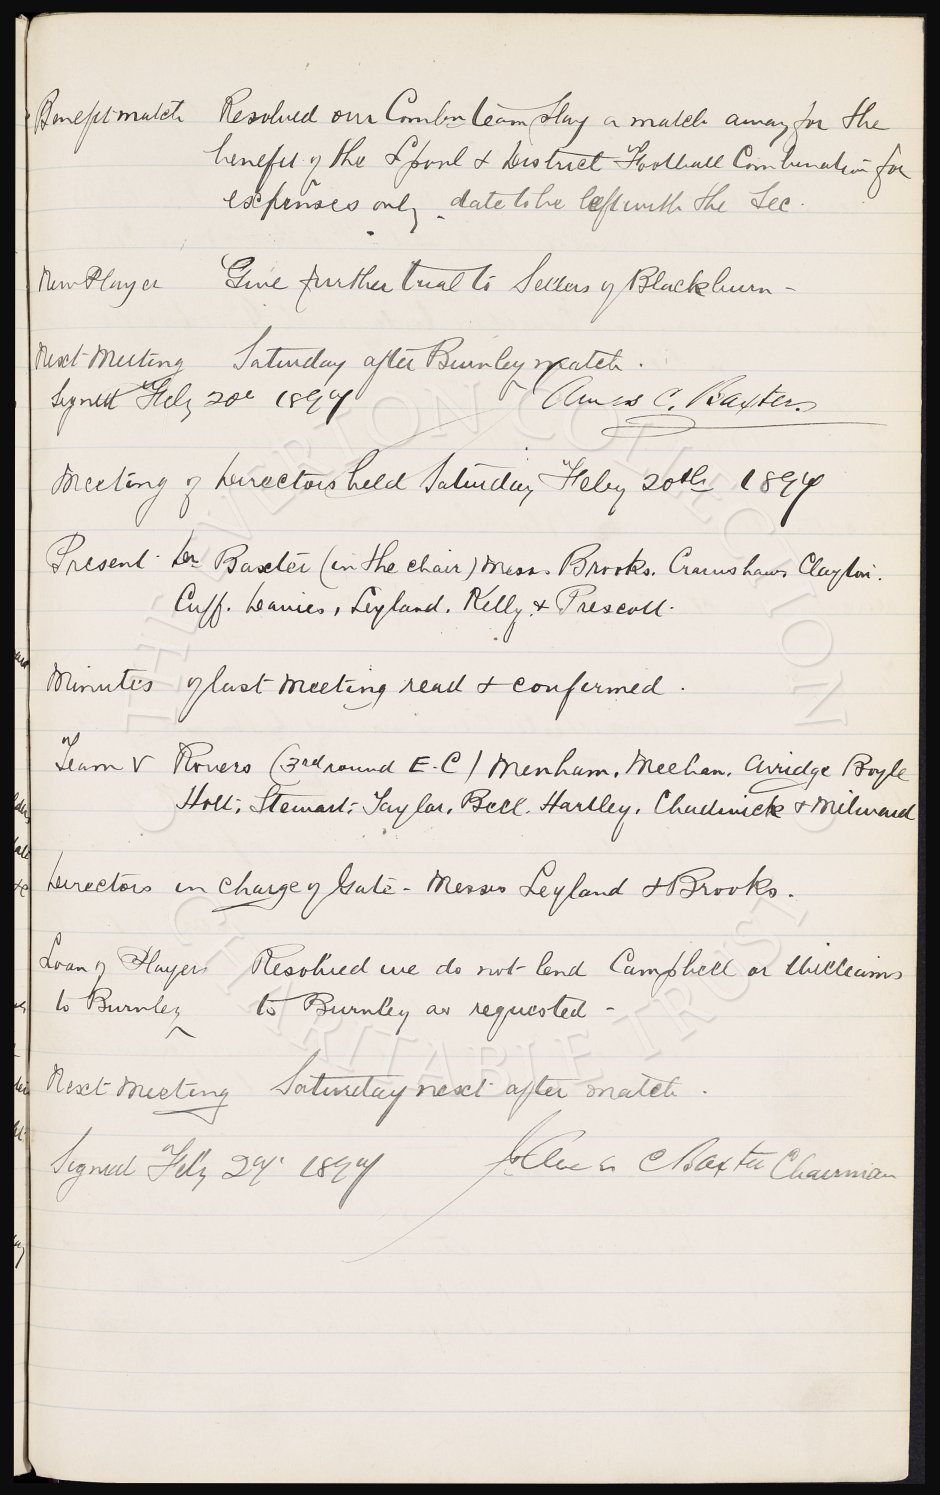 Benefit match Resolved our Combn team play a match away for the
benefit of the L'pool & District Football Combination for
expenses only, date to be left with the Sec.
New Player Give further trial to Sellers of Blackburn -
Next Meeting Saturday after Burnley match.
Signed Feby 20th 1897 James C. Baxter.
Meeting of Directors held Saturday Feby 20th 1897
Present Dr Baxter (in the chair) Messrs Brooks. Crawshaw Clayton.
Cuff. Davies, Leyland. Kelly & Prescott.
Minutes of last Meeting read & confirmed.
Team v Rovers (3rd round E.C) Menham. Meehan. Arridge Boyle
Holt. Stewart. Taylor. Bell. Hartley. Chadwick & Milward
Directors in charge of Gate - Messrs Leyland & Brooks.
Loan of Players Resolved we do not lend Campbell or Williams
to Burnley to Burnley as requested -
Next Meeting Saturday next after match.
Signed Feby 1897 James C Baxter Chairman
THE EVERTON COLLECTION
CHARITABLE TRUST